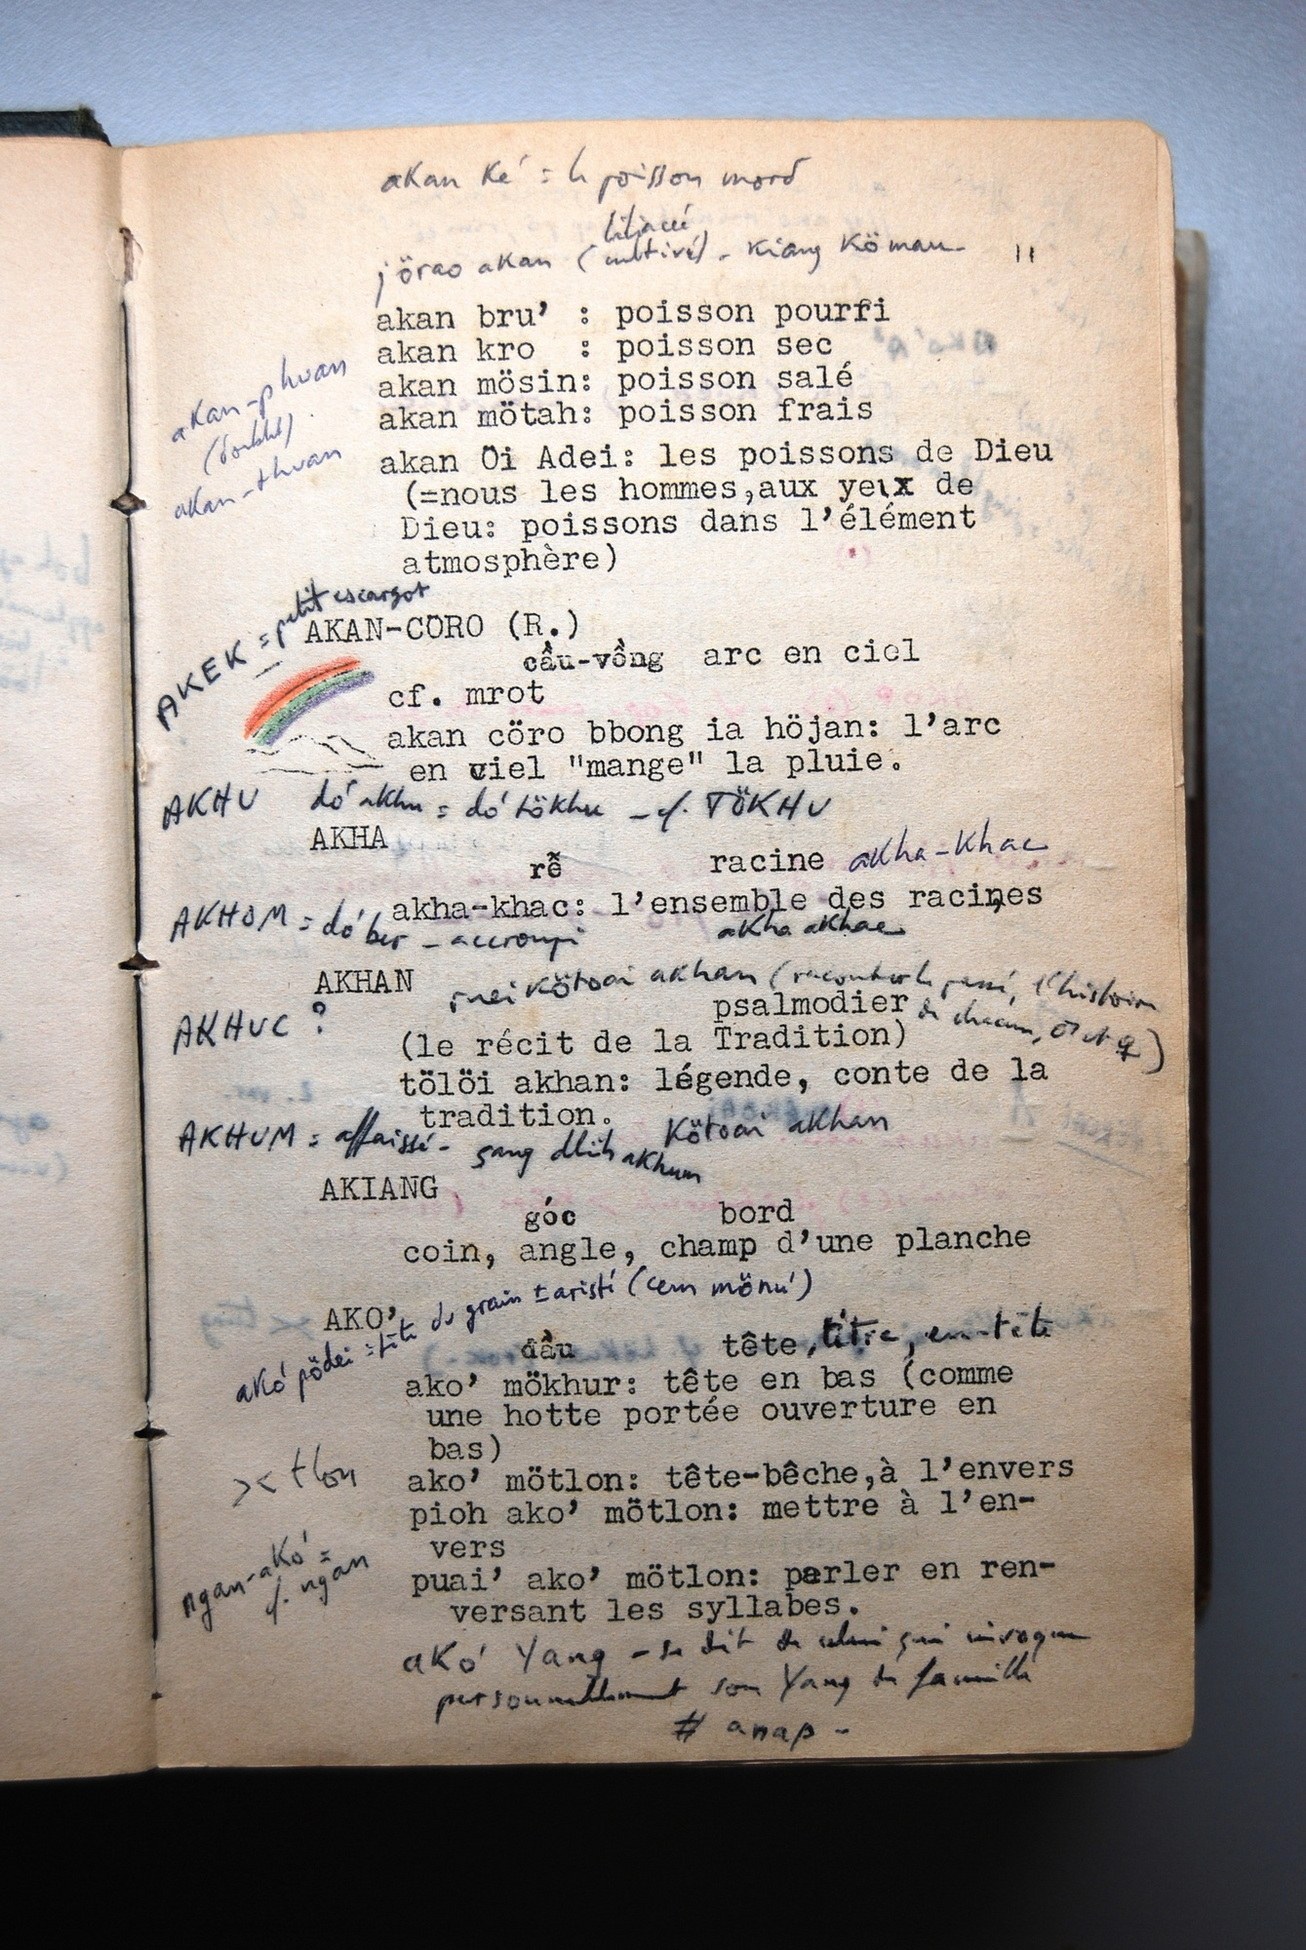 akan ké = le poisson mord
liliacée
jörao akan (cultivé) - kiang köman
11
akan bru' : poisson pourri
akan kro : poisson sec
akan mösin: poisson salé
akan mötah: poisson frais
akan-phuan
(doublet)
akan-thuan
akan Öi Adei: les poissons de Dieu
(=nous les hommes,aux yeux de
Dieu: poissons dans l'élément
atmosphère)
AKEK = petit escargot
AKAN-CÖRO (R.)
cầu-vồng arc en ciel
cf. mrot
akan cöro bbong ia höjan: l'arc
en ciel "mange" la pluie.
AKHU dó akhu = dó tökhu - cf. TÖKHU
AKHA
rễ racine akha-khac
akha-khac: l'ensemble des racines
AKHOM = dó ber - accroupi
akha akhac
AKHAN
ruei kötoai akhan (raconter le passé, l'histoire
de chacun, ♂ et ♀)
psalmodier
AKHUC ?
(le récit de la Tradition)
tölöi akhan: légende, conte de la
tradition.
kötoai akhan
AKHUM = affaissé - sang dlih akhum
AKIANG
góc bord
coin, angle, champ d'une planche
AKO'
akó pödei = tête du grain ± aristé (cem mönú)
đầu tête, titre, en-tête
ako' mökhur: tête en bas (comme
une hotte portée ouverture en
bas)
>< tlon
ako' mötlon: tête-bêche,à l'envers
pioh ako' mötlon: mettre à l'en-
vers
ngan-akó =
cf. ngăn
puai' ako' mötlon: parler en ren-
versant les syllabes.
akó Yang - se dit de celui qui invoque
personnellement son Yang de famille
# anap -